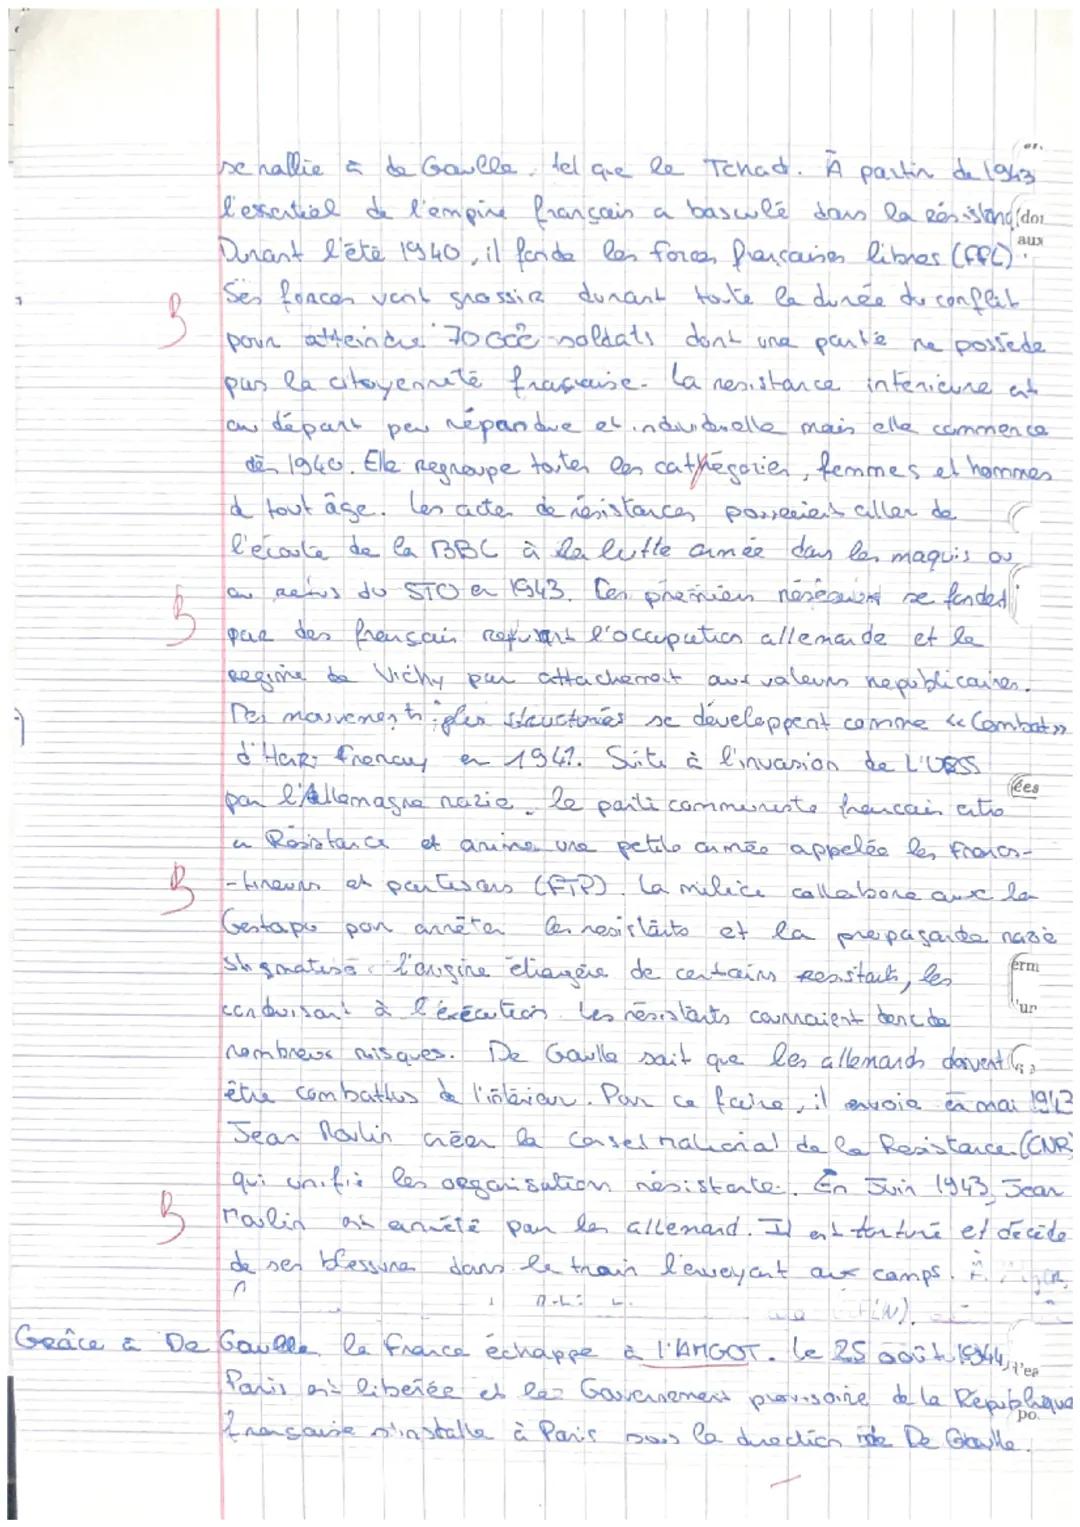 se rallie à de Gaulle, tel que le Tchad. À partir de 1943
l'essentiel de l'empire français a basculé dans la résistance (dor
aux
Durant l'été 1940, il fonde les forces françaises libres (FFL).
Ses forces vont grossir durant toute la durée du conflit
B
pour atteindre 70 000 soldats dont une partie ne possède
pas la citoyenneté française. La resistance intérieure est
au départ peu répandue et individuelle mais elle commence
dès 1940. Elle regroupe toutes les cathégories, femmes et hommes
de tout âge. Les actes de résistances pouvaient aller de
l'écoute de la BBC à la lutte armée dans les maquis ou
au refus du STO en 1943. Ces premiers se fondent
B
par des français refusant l'occupation allemande et le
regime de Vichy par attachement aux valeurs republicaines.
Des mouvements plus structurés se développent comme « Combat »
d'Henri Frenay en 1941. Suite à l'invasion de L'URSS
ées
par l'Allemagne nazie, le parti communiste francais entre
en Résistance et anime une petite armée appelée les Francs-
B
-tireurs et partisans (FTP). La milice collabore avec la
Gestapo pour arrêter les resistants et la propagande nazie
stigmatise l'origine étrangère de certains resistants, les
erm
conduisant à l'exécution. Les résistants couraient donc de
'ur
nombreux risques. De Gaulle sait que les allemands doivent
être combattus de l'intérieur. Pour ce faire, il envoie en mai 1943
Jean Moulin créer la Conseil national de la Resistance (CNR)
qui unifie les organisation résistante. En Juin 1943, Jean
B
Moulin est arrêté par les allemand. Il est torturé et décède
de ses blessures dans le train l'envoyant aux camps.
Grâce à De Gaulle, la France échappe à l'AMGOT. Le 25 août 1944,
Paris est libérée et le Gouvernement provisoire de la République
po.
française s'installe à Paris sous la direction de De Gaulle.